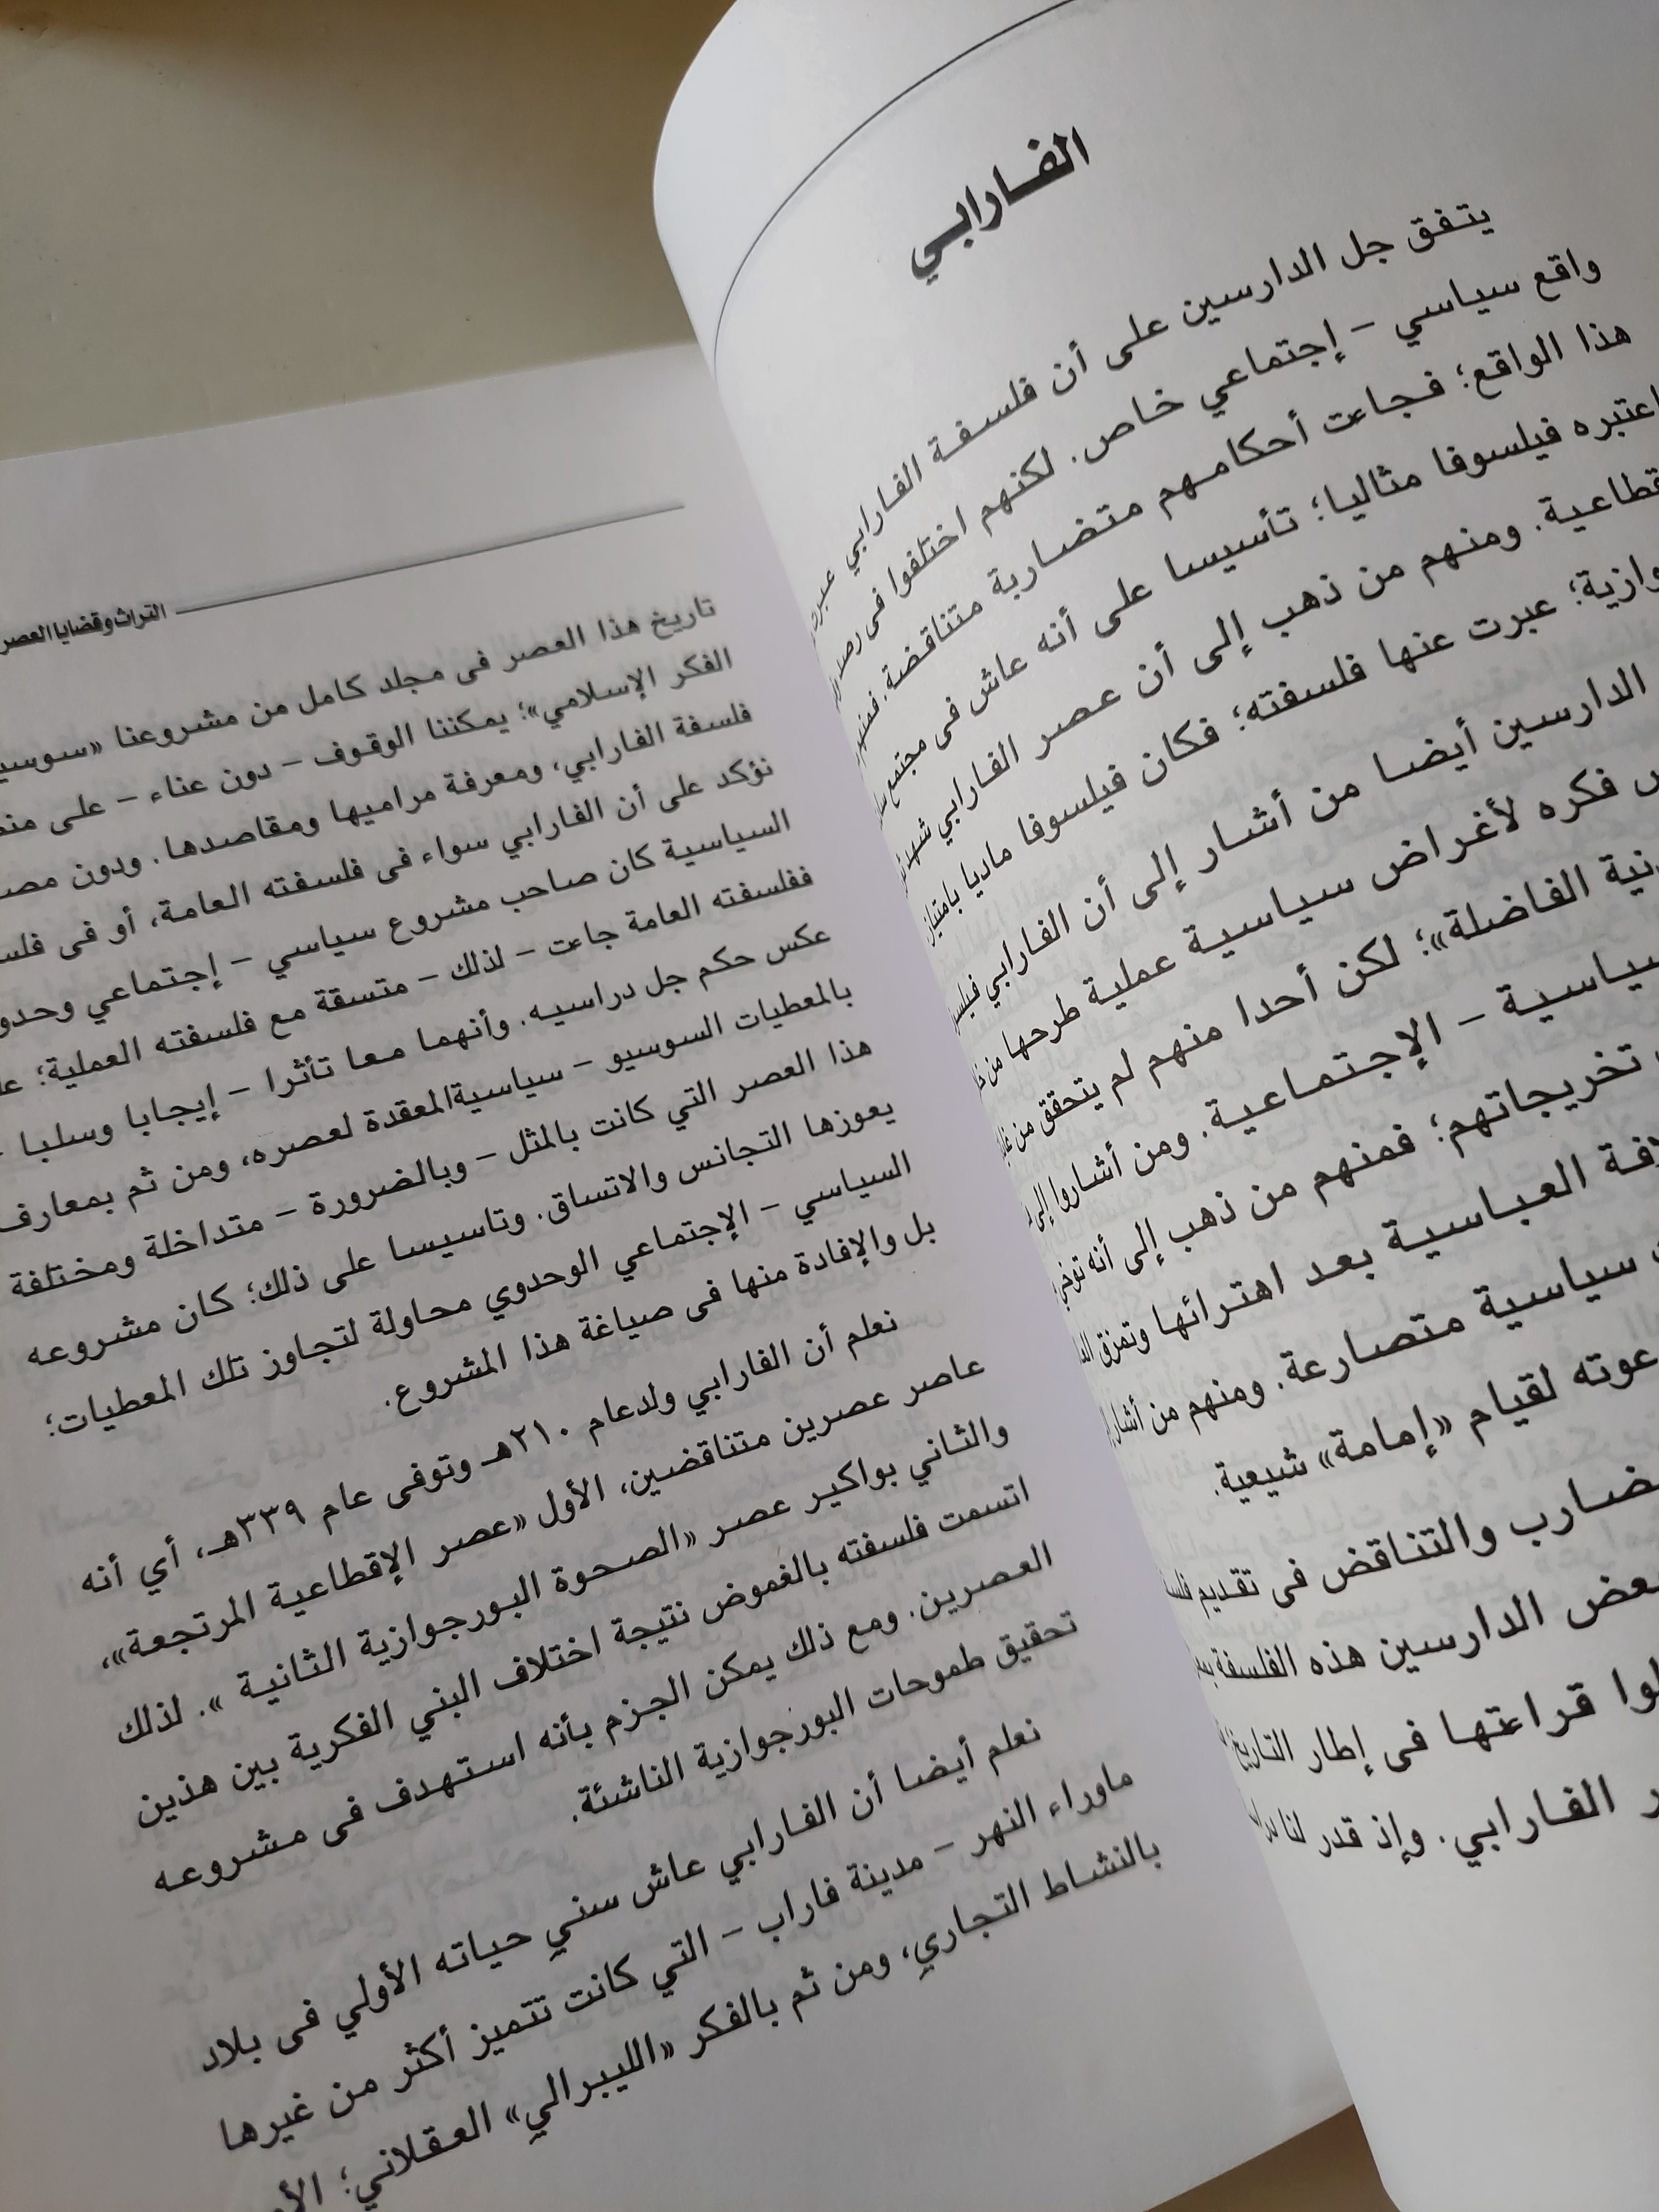 الفارابي
يتفق جل الدارسين على أن فلسفة الفارابي
واقع سياسي - إجتماعي خاص. لكنهم اختلفوا فى رصد
هذا الواقع؛ فجاءت أحكامهم متضاربة متناقضة. فمنهم
اعتبره فيلسوفا مثاليا؛ تأسيسا على أنه عاش فى مجتمع
ومنهم من ذهب إلى أن عصر الفارابي شهد
عبرت عنها فلسفته؛ فكان فيلسوفا ماديا بامتياز
الدارسين أيضا من أشار إلى أن الفارابي
فكره لأغراض سياسية عملية طرحها من
الفاضلة»؛ لكن أحدا منهم لم يتحقق من
الإجتماعية. ومن أشاروا إلى
تخريجاتهم؛ فمنهم من ذهب إلى أنه توخى
العباسية بعد اهترائها وتمزق
سياسية متصارعة. ومنهم من أشار
لقيام «إمامة» شيعية.
والتناقض فى تقديم
الدارسين هذه الفلسفة
قراءتها فى إطار التاريخ
الفارابي. وإذ قدر لنا
التراث وقضايا العصر
تاريخ هذا العصر فى مجلد كامل من مشروعنا
الفكر الإسلامي»؛ يمكننا الوقوف - دون عناء - على
فلسفة الفارابي، ومعرفة مراميها ومقاصدها. ودون
نؤكد على أن الفارابي سواء فى فلسفته العامة، أو فى
السياسية كان صاحب مشروع سياسي - إجتماعي
ففلسفته العامة جاءت - لذلك - متسقة مع فلسفته العملية؛
عكس حكم جل دراسيه. وأنهما معا تأثرا - إيجابا وسلبا -
بالمعطيات السوسيو - سياسيةالمعقدة لعصره، ومن ثم بمعارف
هذا العصر التي كانت بالمثل - وبالضرورة - متداخلة ومختلفة
يعوزها التجانس والاتساق. وتاسيسا على ذلك؛ كان مشروعه
السياسي - الإجتماعي الوحدوي محاولة لتجاوز تلك المعطيات؛
بل والإفادة منها فى صياغة هذا المشروع.
نعلم أن الفارابي ولدعام ٢١٠هـ وتوفى عام ٣٣٩هـ، أي أنه
عاصر عصرين متناقضين، الأول «عصر الإقطاعية المرتجعة»،
والثاني بواكير عصر «الصحوة البورجوازية الثانية ». لذلك
اتسمت فلسفته بالغموض نتيجة اختلاف البني الفكرية بين هذين
العصرين. ومع ذلك يمكن الجزم بأنه استهدف فى مشروعه
تحقيق طموحات البورجوازية الناشئة.
نعلم أيضا أن الفارابي عاش سني حياته الأولي فى بلاد
ماوراء النهر - مدينة فاراب - التي كانت تتميز أكثر من غيرها
بالنشاط التجاري، ومن ثم بالفكر «الليبرالي» العقلاني؛